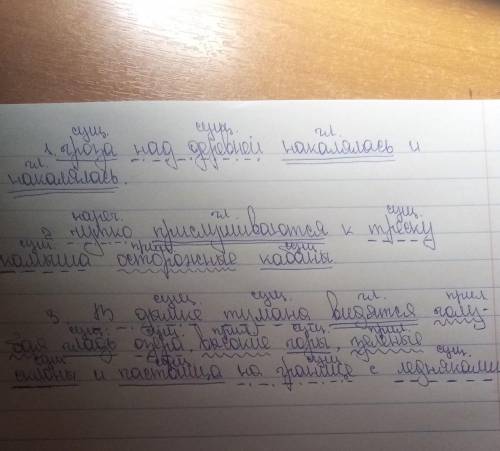 сущ. сущ. гл.
1. гроза над деревной накалялась и
гл.
накалялась.
нареч. гл. сущ.
2 чутко прислушиваются к треску
сущ. прил. сущ.
камыша осторожные кабаны
сущ. сущ. гл. прил
3 В дымке тумана видятся голу-
сущ. сущ. прил. сущ. прил.
бая гладь озера, высокие горы, зелёные
сущ. сущ. сущ. сущ.
склоны и пастбища на границе с ледняками